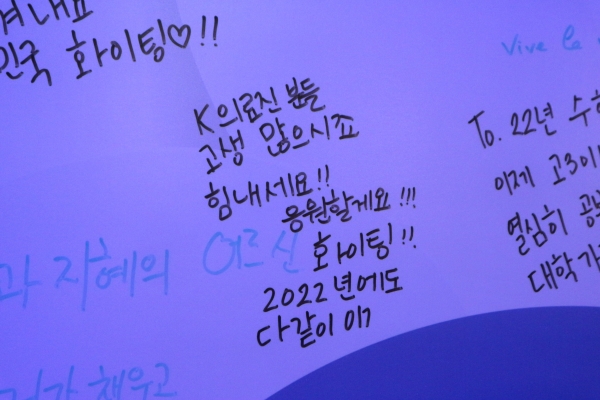 겨내요
민국 화이팅♡!!
Vive le
K의료진 분들
고생 많으시죠
힘내세요!!
응원할게요!!!
화이팅!!
2022년에도
다같이 이기
To. 22년 수험
이제 고3이
열심히 공부
대학가
과 지혜의 어르신
채우고